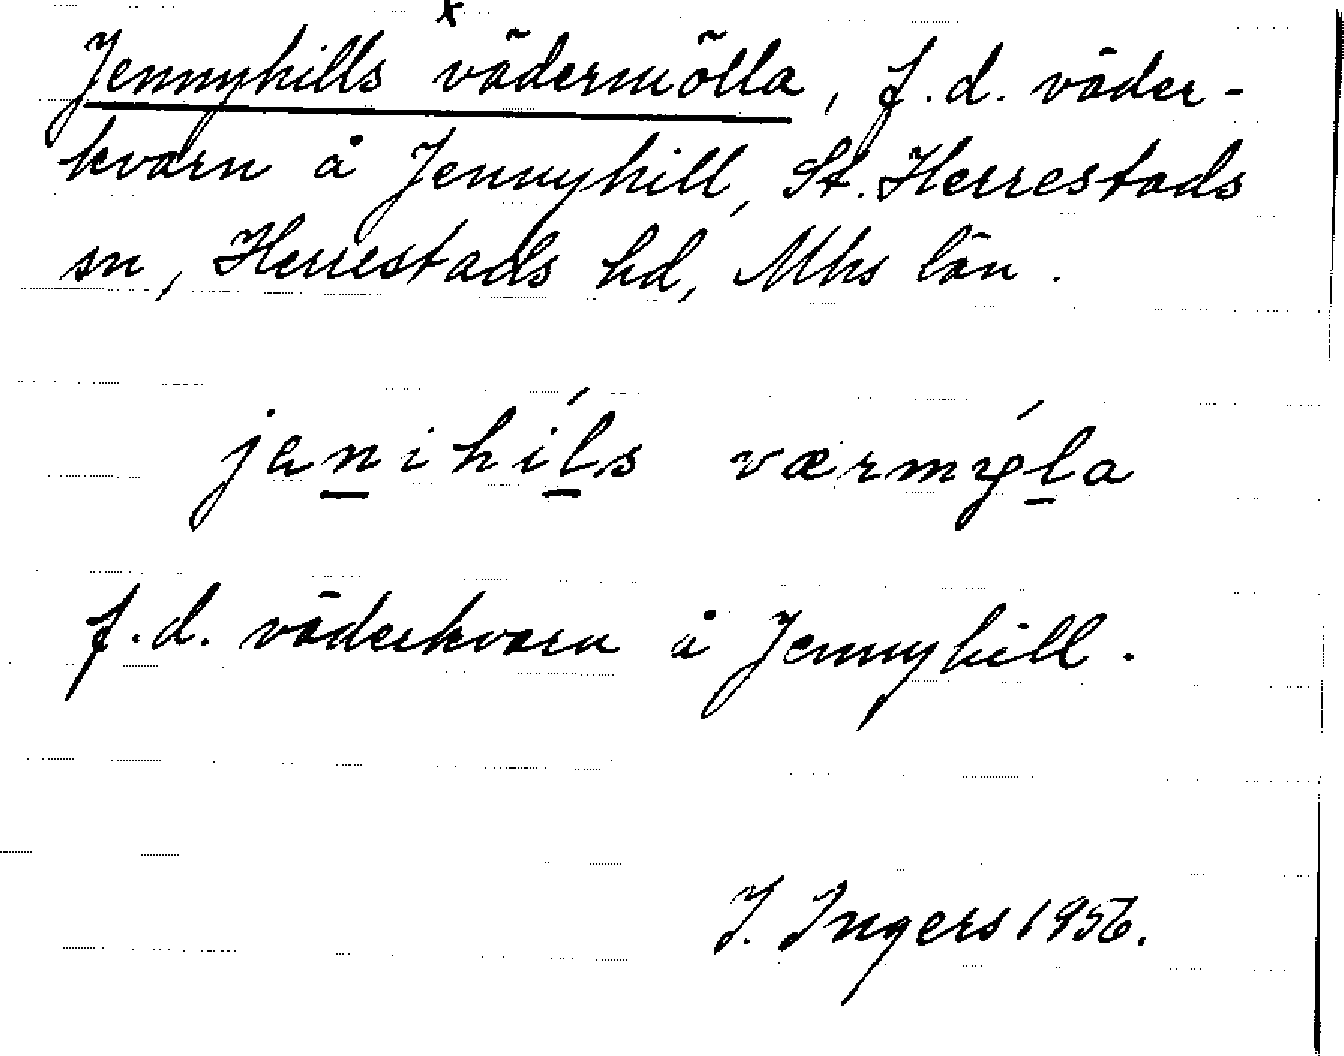 x
Jennyhills vädermölla, f.d. väder-
kvarn å Jennyhill, St. Herrestads
sn, Herrestads hd, Mhs län.
jaṉihíḻs værmǿḻa
f.d. väderkvarn å Jennyhill.
I. Ingers 1956.